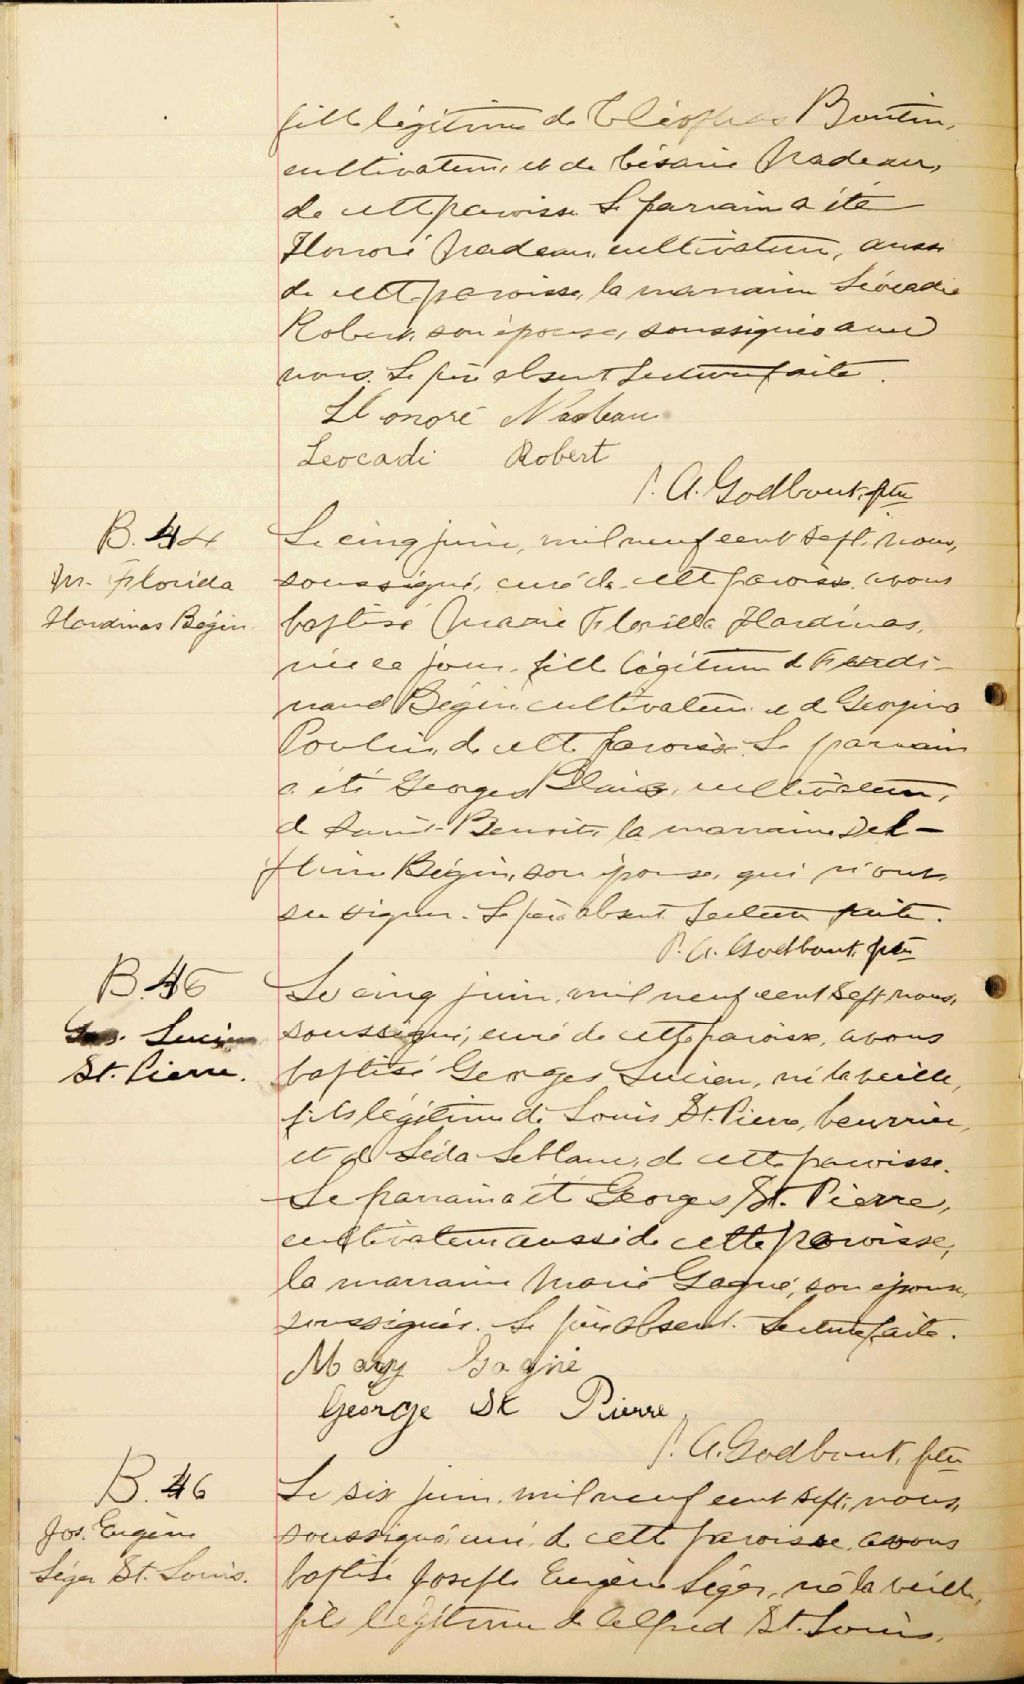 fille légitime de Cléophas Boutin,
cultivateur, et de Césarie Nadeau,
de cette paroisse. Le parrain a été
Honoré Nadeau, cultivateur, aussi
de cette paroisse, la marraine Léocadie
Robert, son épouse, soussignés avec
nous. Le père absent. Lecture faite.
Honoré Nadeau
Leocadi Robert
P. A. Godbout, ptre
B. 44
M. Florida
Hardinas Bégin.
Le cinq juin, mil neuf cent sept, nous,
soussigné, curé de cette paroisse, avons
baptisé Marie Florida Hardinas,
née ce jour, fille légitime de Ferdi-
nand Bégin, cultivateur et de Georgina
Poulin, de cette paroisse. Le parrain
a été Georges Blais, cultivateur,
de Saint-Benoit, la marraine Del-
phine Bégin, son épouse, qui n'ont
su signer. Le père absent. Lecture faite.
P. A. Godbout, ptre
B. 45
Geo. Lucien
St. Pierre.
Le cinq juin, mil neuf cent sept, nous,
soussigné, curé de cette paroisse, avons
baptisé Georges Lucien, né la veille,
fils légitime de Louis St. Pierre, beurrier,
et de Léda Leblanc, de cette paroisse.
Le parrain a été Georges St. Pierre,
cultivateur aussi de cette paroisse,
la marraine Marie Gagné, son épouse,
soussignés. Le père absent. Lecture faite.
Mary Gagné
George St Pierre
P. A. Godbout, ptre
B. 46
Jos. Eugène
Léger St. Louis.
Le six juin, mil neuf cent sept, nous,
soussigné, curé de cette paroisse, avons
baptisé Joseph Eugène Léger, né la veille,
fils légitime de Alfred St. Louis,